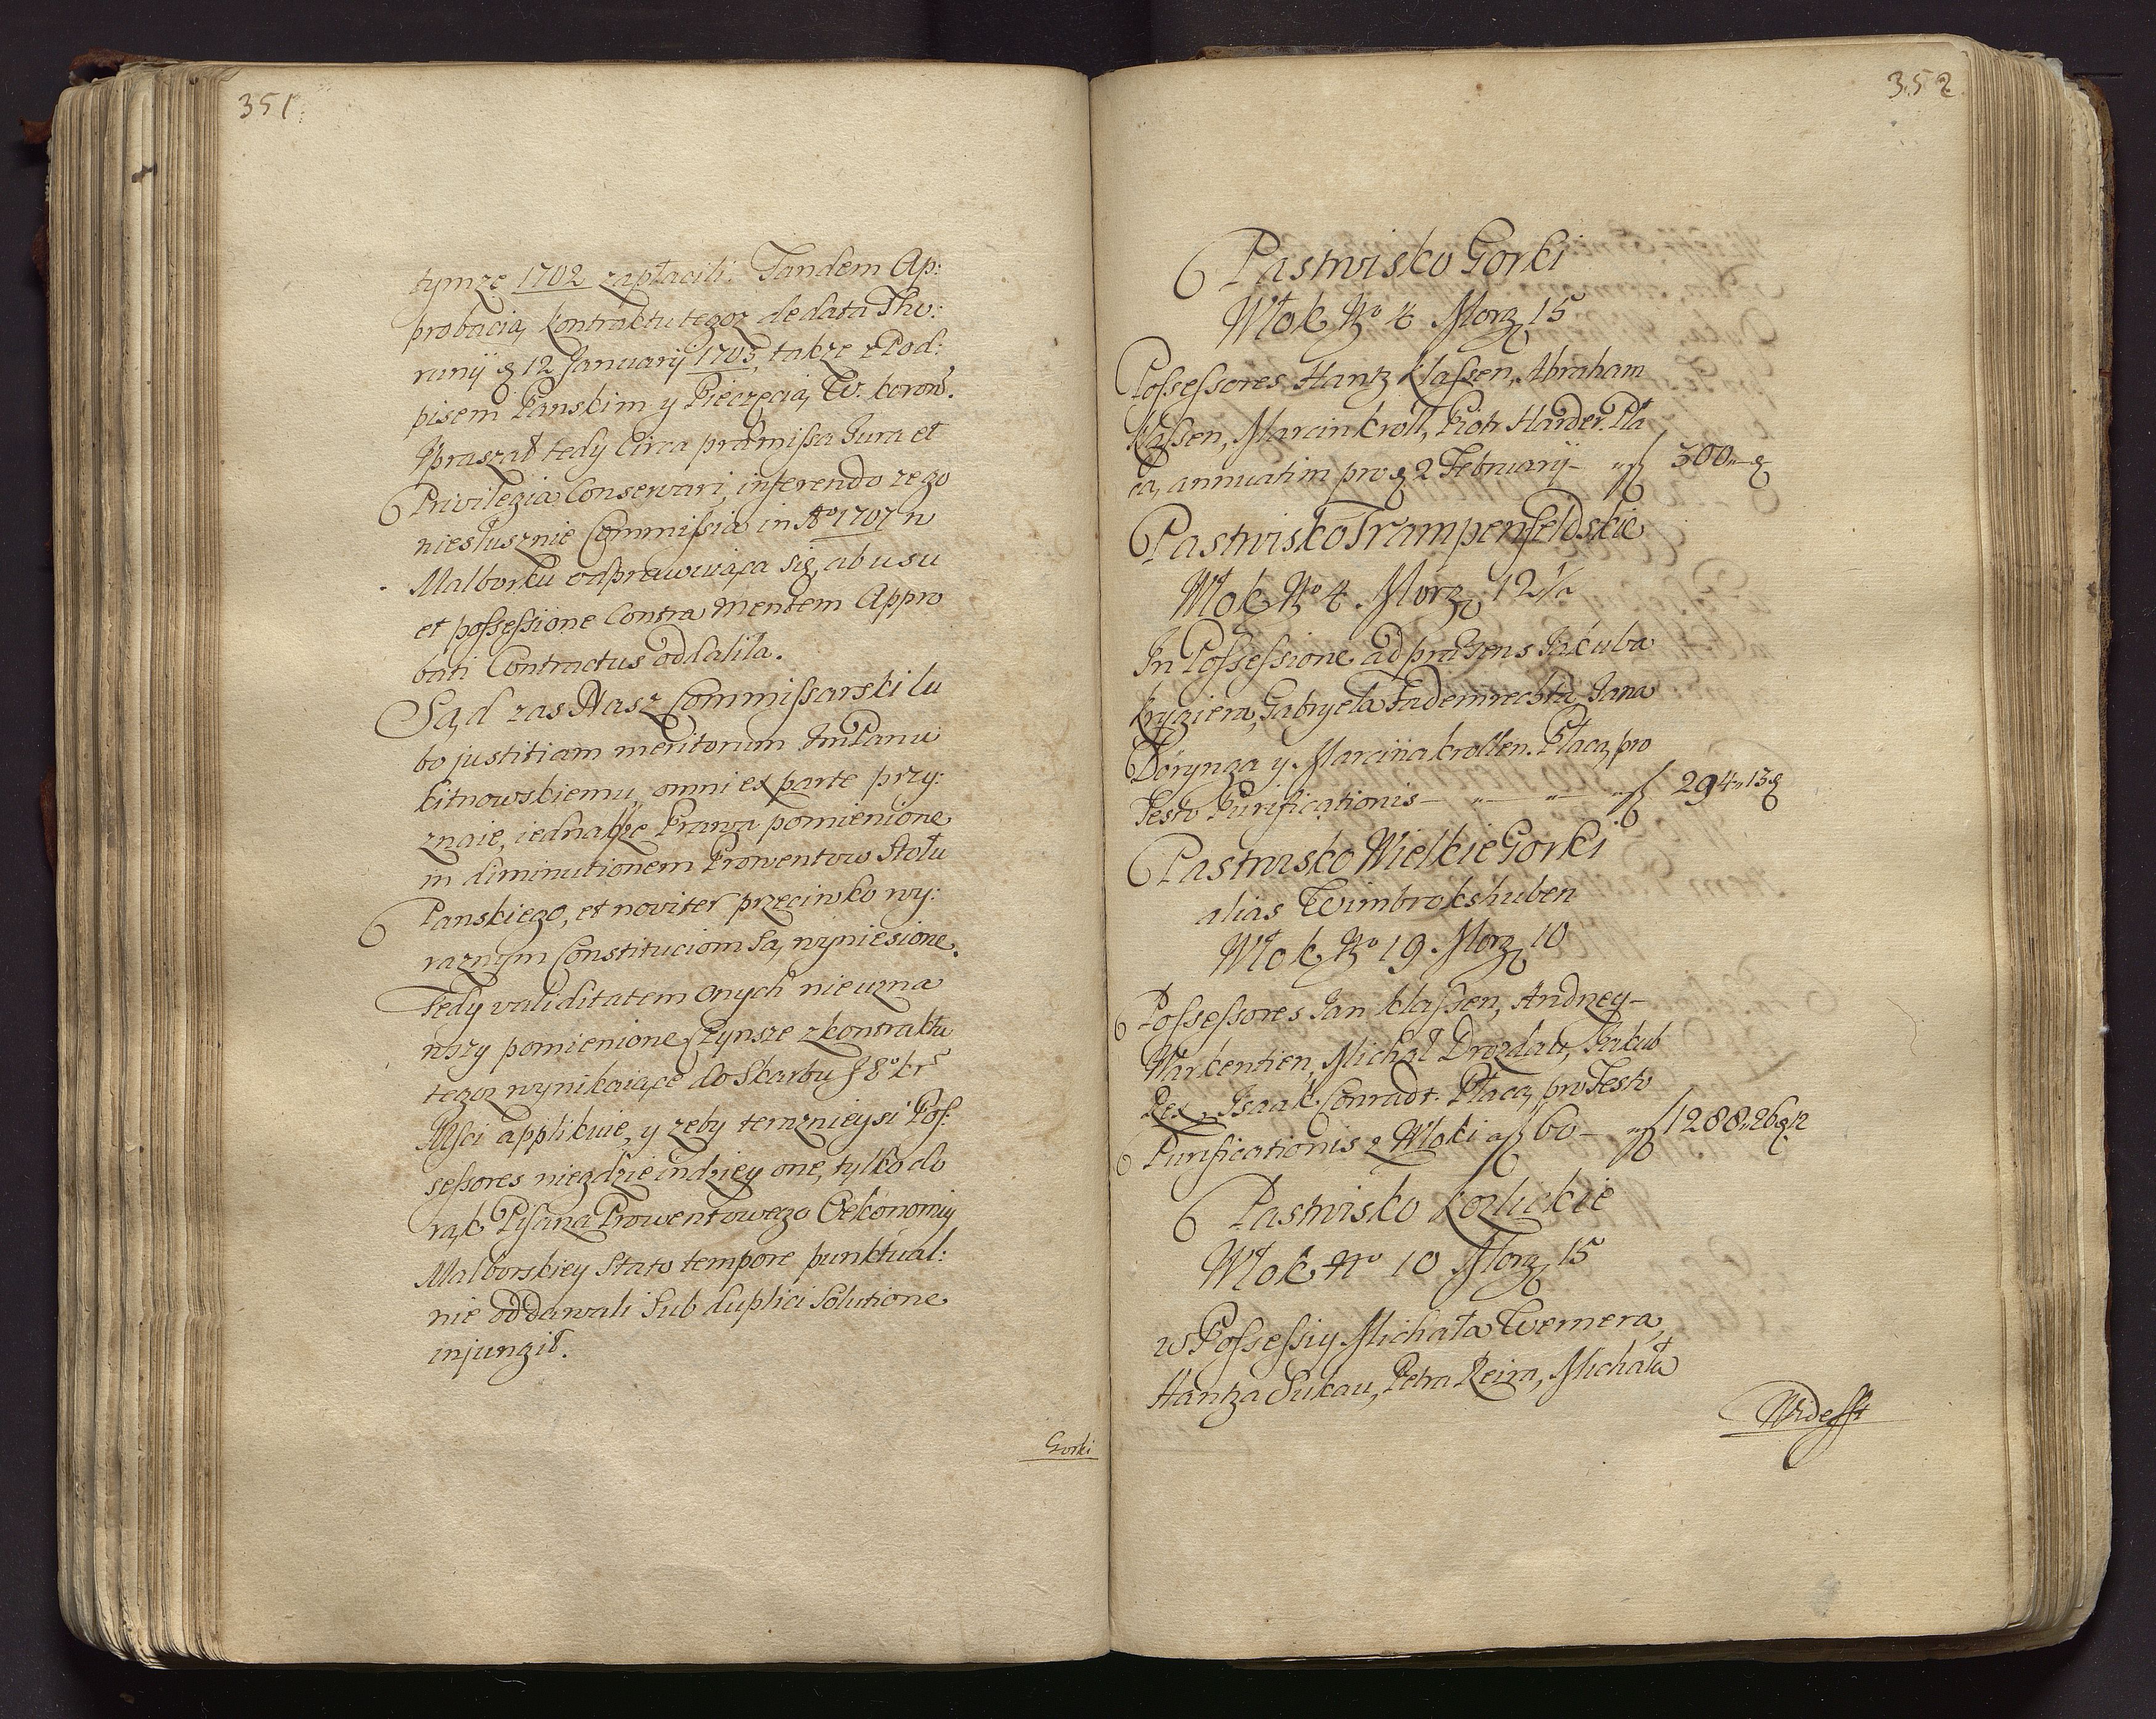 351
tymze 1702 zapłacili. Tandem Ap:
probacią kontraktu tegoz de data Tho:
runij d 12 Januarij 1703, takze z Pod:
pisem Panskim y Pieczęcią W. koron.
Upraszał tedy Circa præmissa Jura et
Privilegia Conservari, inferendo ze go
niesłusznie Commissia in Aº 1707 w
Malborku odprawuiąca się, ab usu
et possessione Contra mentem Appro
bati Contractus oddaliła.
Sąd zas Nasz Commissarski lu
bo justitiam meritorum ImPanu
kitnowskiemu, omni ex parte przy:
znaie, iednakze Prawa pomienione
in diminutionem Prowentow Stołu
Panskiego, et noviter przeciwko wy:
raznym Constituciom są wyniesione.
Tedy validitatem onych nie uzna
wszy pomienione Czynsze z kontraktu
tegoz wynikaiące do Skarbu J 8º kr
Msci applikuie, y zeby teraznieysi Pos:
sessores niegdzie indziey one, tylko do
rąk Pisarza Prowentowego Oekonomiy
Malborskiey Stato tempore punktual:
nie oddawali sub duplici Solutione
injungit.
Gorki
352
Pastwisko Gorki
Włok Nº 4 Morg 15
Possessores Hantz Klassen, Abraham
Klassen, Marcin Kroll, Piotr Harder. Pła
cą annuatim pro d 2 Februarij - " f 300 " - g
Pastwisko Trampenfeldskie
Włok Nº 4 Morg 12 1/2
In Possessione ad præsens Jakuba
krygiera, Gabryela Fademrechta Jana
Dörynga y Marcina krollen. Płacą pro
Festo Purificationis - " - " - " f 294 " 13 g
Pastwisko Wielkie Gorki
alias Wimbrokshuben
Włok Nº 19 Morg 10
Possessores Jan Klassen, Andrzey -
Warkentien, Michał Drozdau, Jakub
Isaak Conradt. Płacą pro Festo
Purificationis z Włoki a f 60 - " f 1288 " 26 g 12
Pastwisko Kozlickie
Włok Nº 10 Morg 15
w Possessiy Michała Wernera,
Hantza Sukau, Petra Reira, Michała